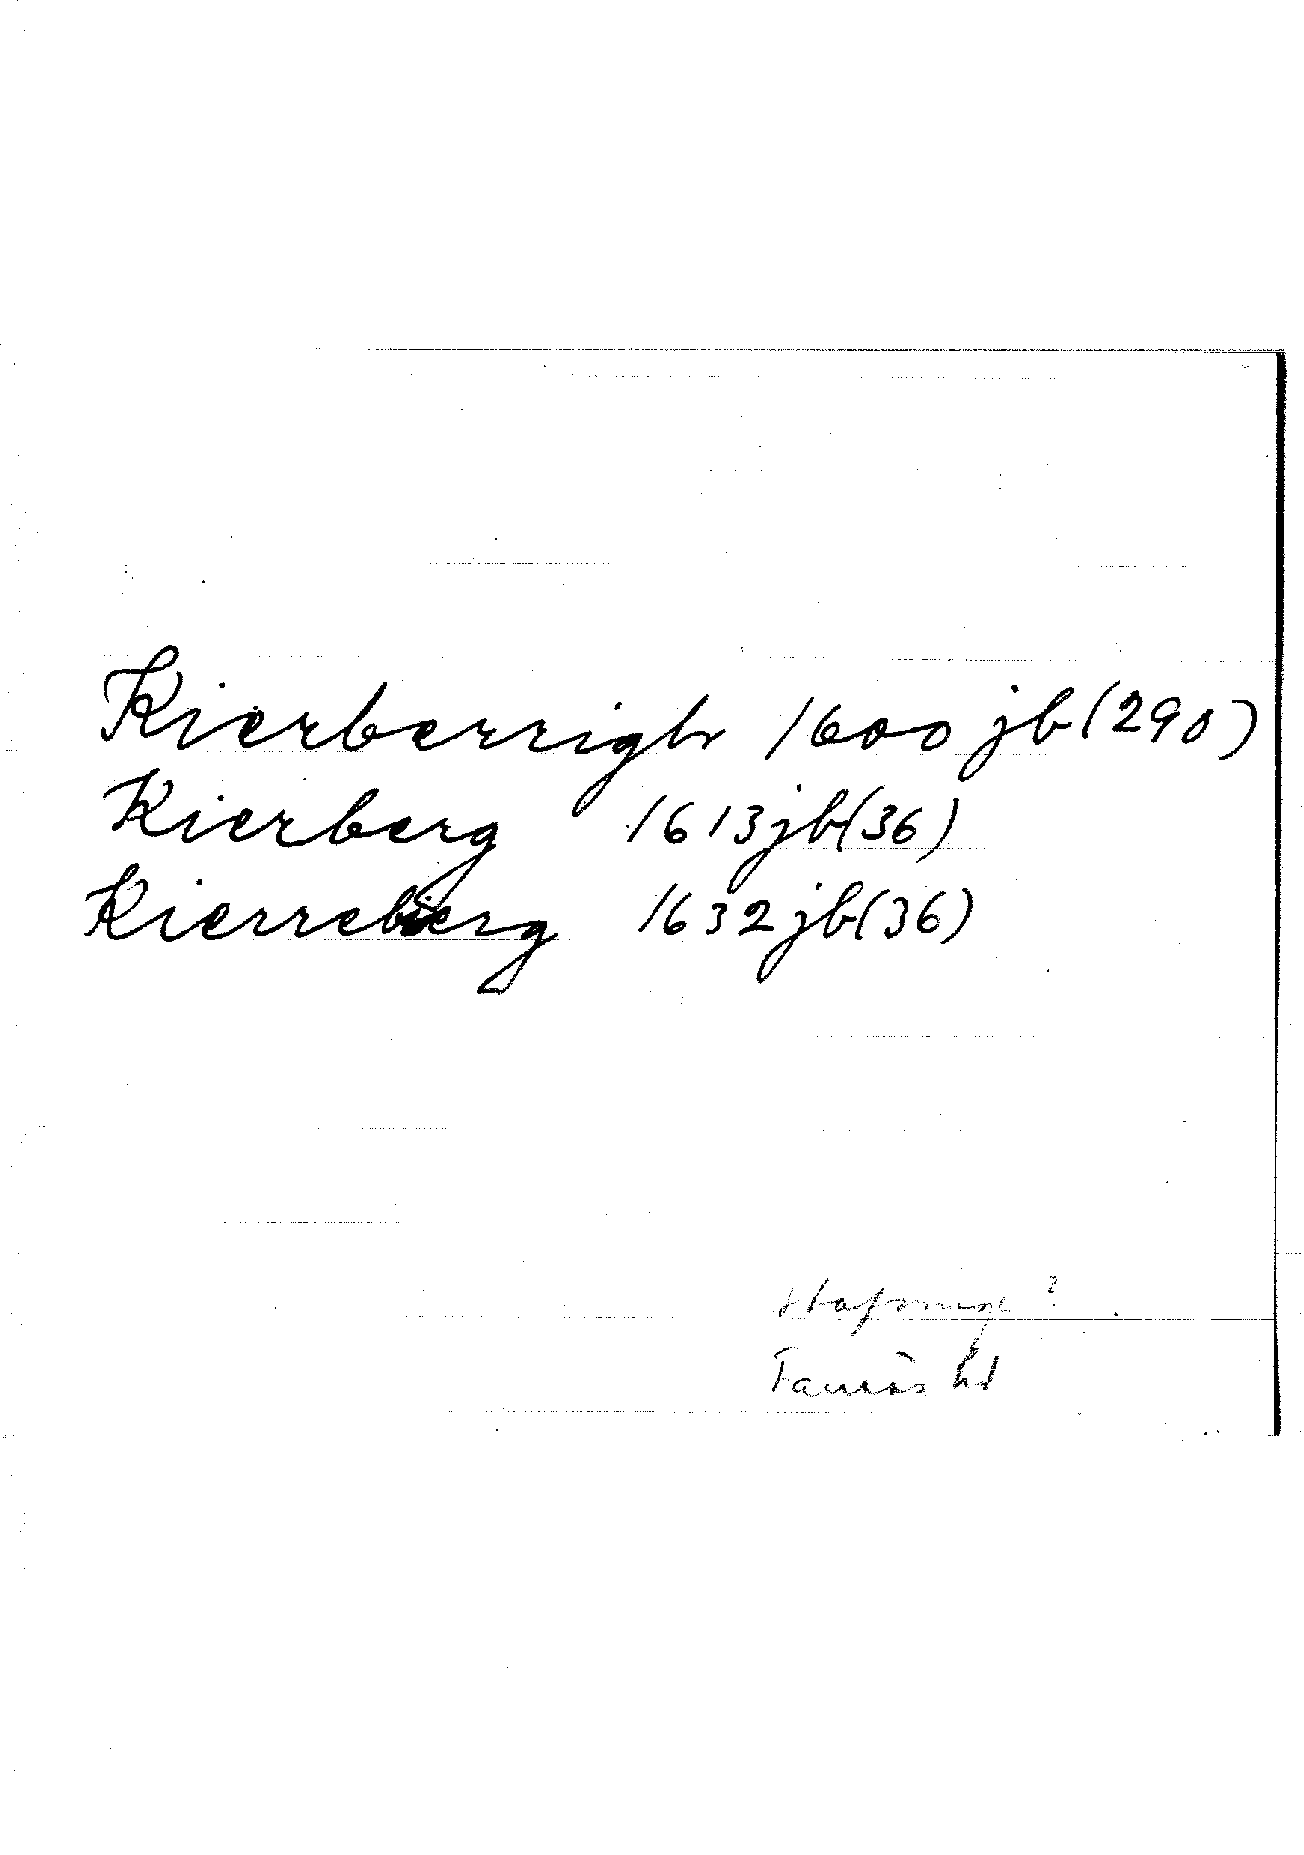 Kierberrigh 1600 jb (290)
Kierberg 1613 jb (36)
Kierreberg 1632 jb (36)
?
Tanrås hd